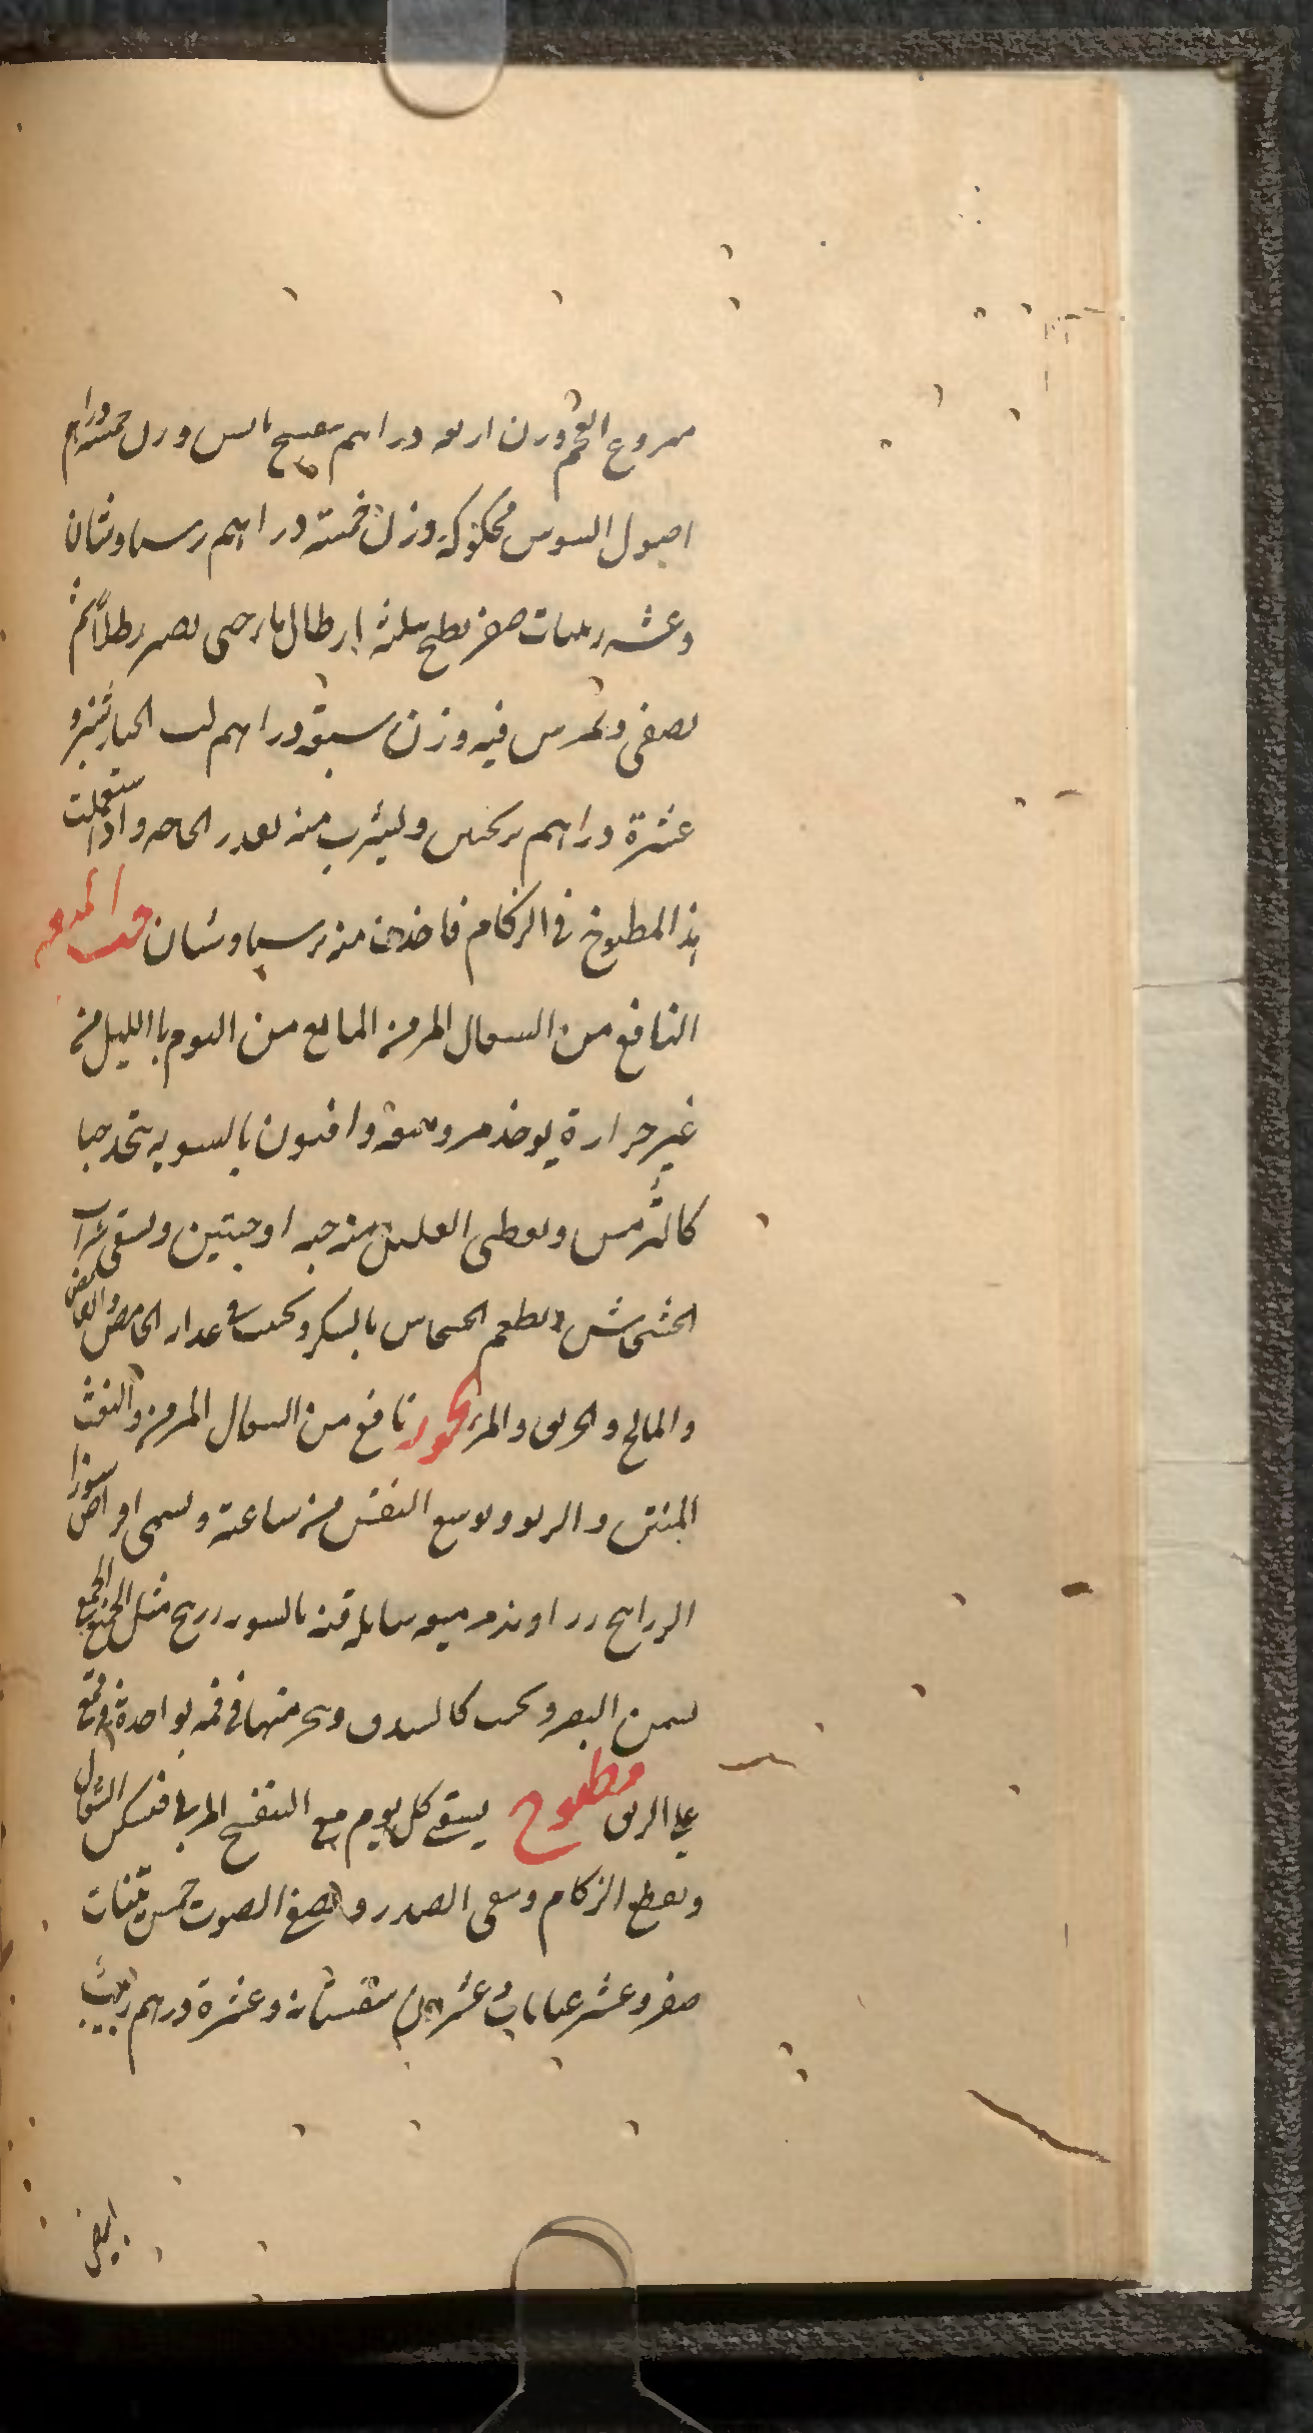 منزوع العجم وزن اربعه دراهم بنفسج يابس وزن خمسه دراهم
اصول السوس محكوكه وزن خمسة دراهم برسياوشان
وعشر تينات صفر يطبخ بثلثة ارطال ما حتى يصير رطلاً ثم
يصفى ويمرس فيه وزن سبعة دراهم لب الخيارشنبر و
عشرة دراهم ترنجبين وليشرب منه بقدر الحاجه واذا استعملت
هذا المطبوخ في الزكام فاحذف منه برسياوشان حب
النافع من السعال المزمن المانع من النوم بالليل من
غير حرارة يوخذ مر وميعة وافيون بالسويه يتخذ حبا
كالترمس ويعطى العليل منه حبه او حبتين ويسقى شراب
الخشخاش ويطعم الخشخاش بالسكر ويجنب في غذاه الحامض والعفص
والمالح والحريف والمر بخور نافع من السعال المزمن والنفث
المنتن والربو ويوسع النفس من ساعته ويسمى اقراص
الزرانيخ زراوند مر ميعه سايله قنه بالسويه زرنيخ مثل الجميع
بسمن البقر ويحبب كالبندق ويبخر منها في فمه بواحدة في قمع
على الريق مطبوخ يسقى كل يوم مع البنفسج المربى فيسكن السعال
ويقطع الزكام وينقي الصدر ويصفي الصوت خمس تينات
صفر وعشر عنابات وعشرين سفستانه وعشرة دراهم زبيب
ابيض